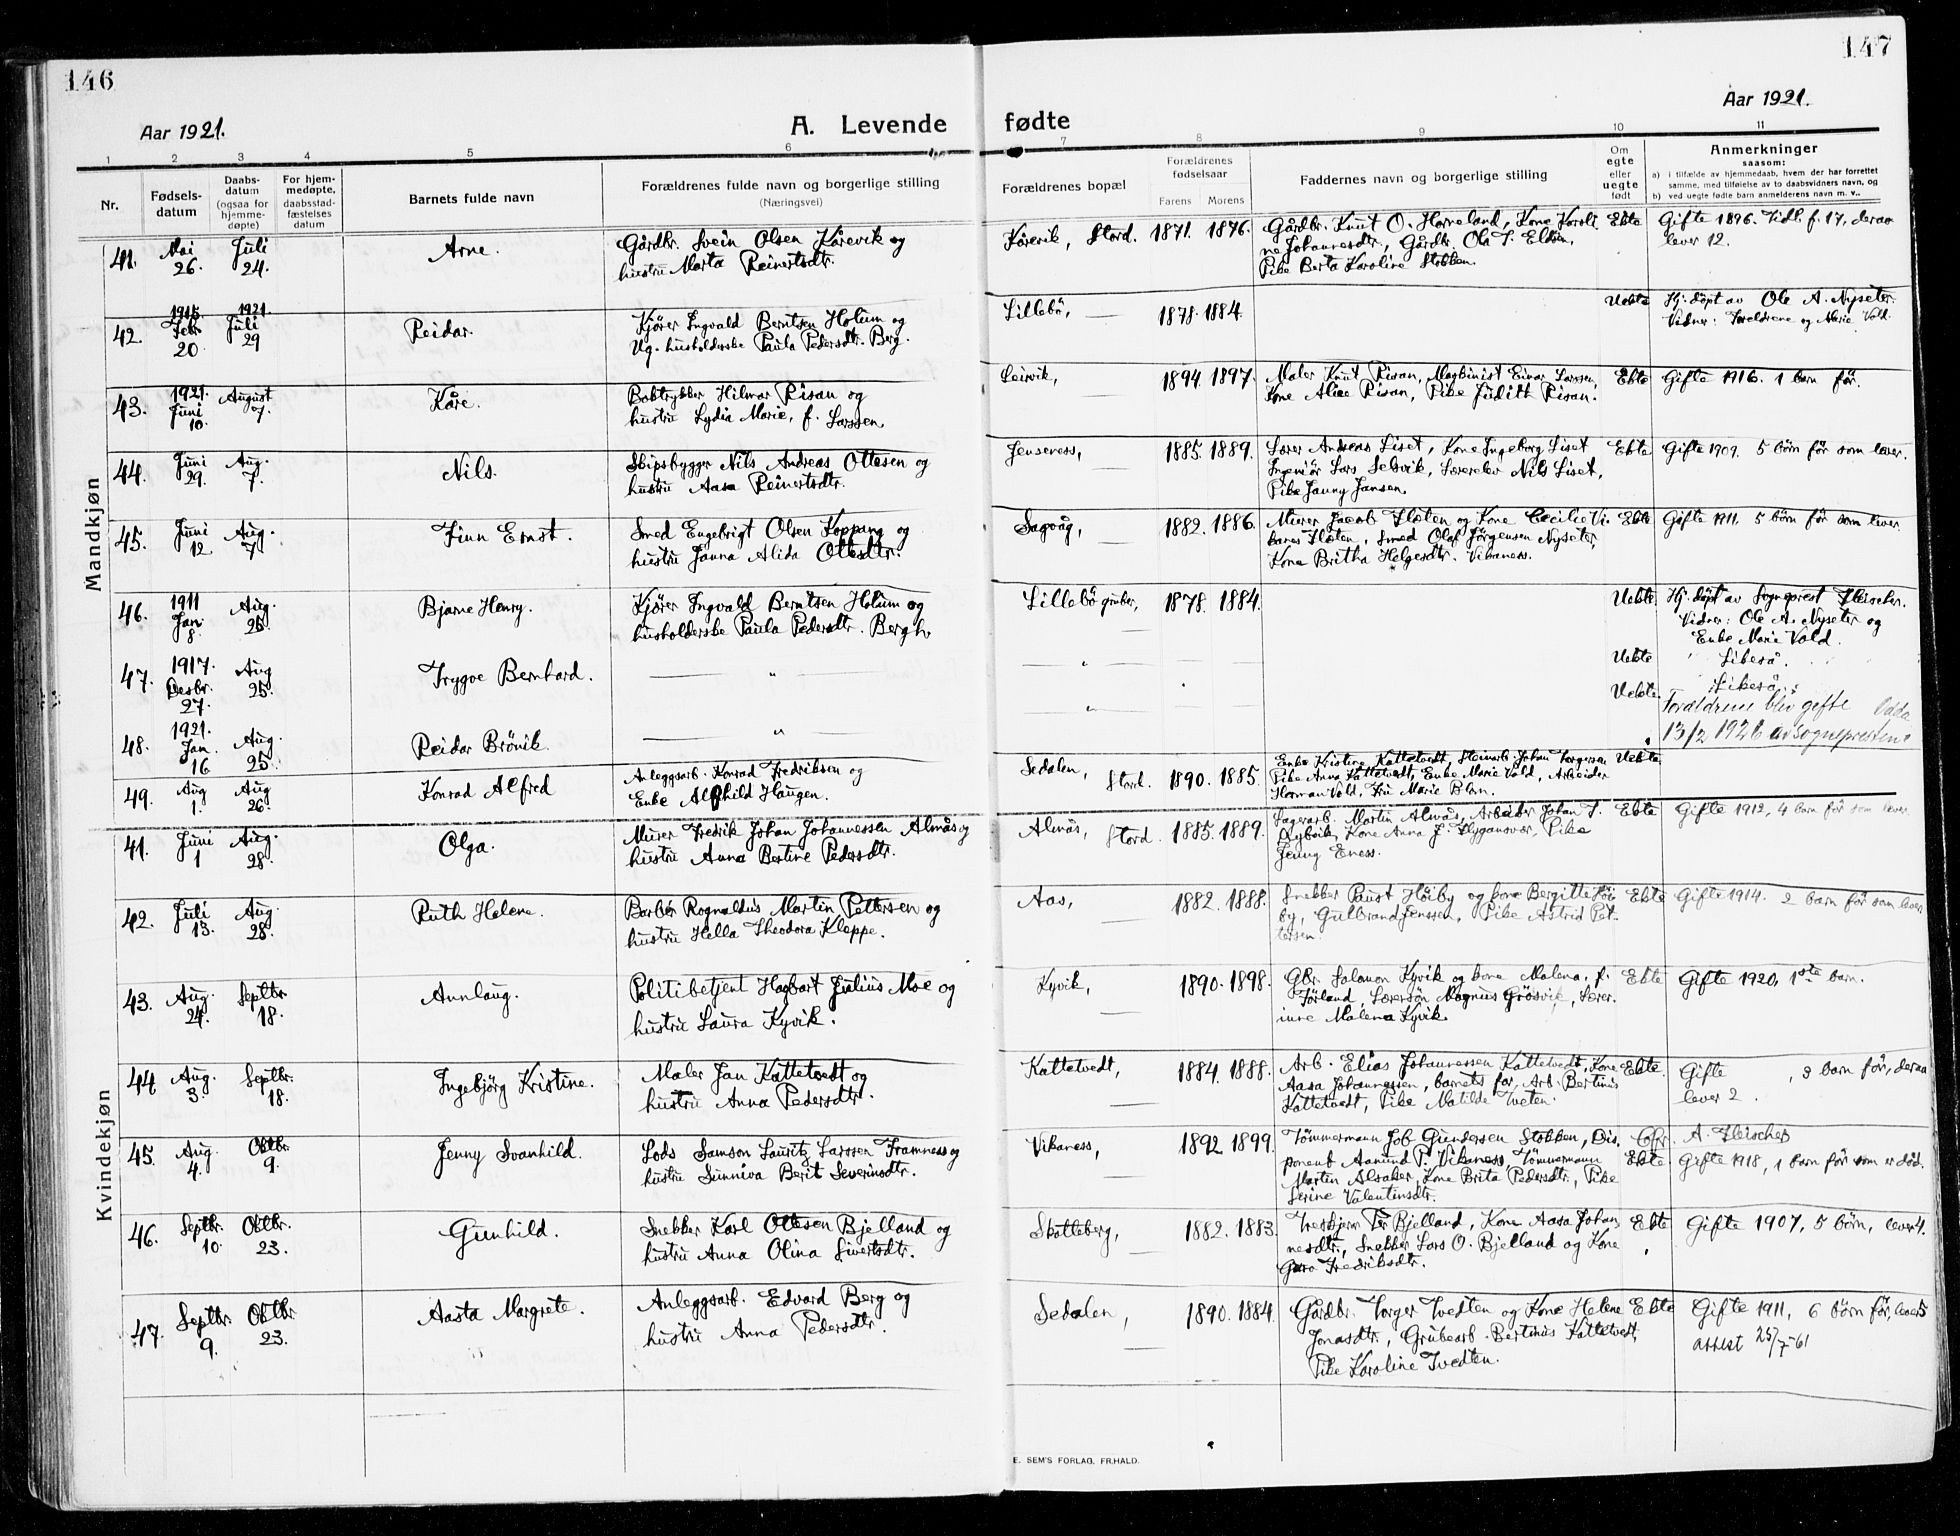 146
Aar 1921.
A. Levende
1 2 3 4 5 6
Nr.
Fødsels-
datum
Daabs-
datum
(ogsaa for
hjemme-
døpte)
For hjem-
medøpte,
daabsstad-
fæstelses
datum
Barnets fulde navn
Forældrenes fulde navn og borgerlige stilling
(Næringsvei)
Mandkjøn
41. Mai 26. Juli 24. Arne. Gårdbr. Svein Olsen Kårevik og
hustru Marta Reinertsdtr.
42. 1915 Febr 20. 1921. Juli 29 Reidar. Kjører Ingvald Berntsen Holum og
Ug. husholderske Paula Pedersdtr. Berg.
43. 1921. Juni 10. August 7. Kåre. Boktrykker Hilmar Risan og
hustru Lydia Marie, f. Larssen.
44. Juni 29. Aug. 7. Nils. Skipsbygger Nils Andreas Ottesen og
hustru Aasa Reinertsdtr.
45. Juni 12. Aug. 7 Finn Ernst. Smed Engebrigt Olsen Kopping og
hustru Janna Alida Ottesdtr.
46. 1911 Jan 8. Aug. 25. Bjarne Henry. Kjører Ingvald Berntsen Holum og
husholderske Paula Pedersdtr. Bergh.
47. 1917. Desbr. 27. Aug 25. Trygve Bernhard. — " —
48. 1921. Jan. 16 Aug. 25. Reidar Brönik. — " —
49. Aug 1. Aug 26. Konrad Alfred Anleggsarb. Konrad Fredriksen og
Enke Alfhild Haugen.
Kvindekjøn
41. Juni 1 Aug. 28. Olga. Murer Fredrik Johan Johannessen Almås og
hustru Anna Bertine Pedersdtr.
42. Juli 13. Aug 28. Ruth Helene. Barbér Rognaldus Martin Pettersen og
hustru Hella Theodora Kleppe.
43. Aug. 24. Septbr 18. Aunlaug. Politibetjent Hagbart Julius Moe og
hustru Laura Kyvik.
44 Aug. 3. Septbr. 18. Ingebjörg Kristine. Maler Jan Kattetvedt og
hustru Anna Pedersdtr.
45. Aug. 4. Oktbr. 9. Jenny Svanhild. Lods Samson Lauritz Larssen Framness og
hustru Sunniva Berit Severinsdtr.
46. Septbr. 10. Oktbr. 23. Gunhild. Snekker Karl Ottesen Bjelland og
hustru Anna Olina Sivertsdtr.
47. Septbr. 9. Oktbr 23. Aasta Margrete. Anleggsarb. Edvard Berg og
hustru Anna Pedersdtr.
147
Aar 1921.
fødte
7 8 9 10 11
Forældrenes bopæl
Forældrenes
fødselsaar
Farens Morens
Faddernes navn og borgerlige stilling
Om
egte
eller
uegte
født
Anmerkninger
saasom:
a) i tilfælde av hjemmedaab, hvem der har forrettet
samme, med tilføielse av to daabsvidners navn, og
b) ved uegte født barn anmelderens navn m. v..
Kårevik, Stord. 1871. 1876. Gårdbr. Knut O. Horneland, Kone Karoli- Ekte Gifte 1896. Tidl. f. 17, derav
ne Johannesdtr., Gårdbr. Ola T. Eldöen, lever 12.
Pike Berta Karoline Stokken.
Lillebö, — 1878. 1884. Uekte Hj. döpt av Ole A. Nyseter.
Vidner: Foreldrene og Marie Vold.
Leirvik, — 1894. 1897. Maler Knut Risan, Maskinist Einar Larssen, Ekte Gifte 1916. 1 barn för.
Kone Alice Risan, Pike Judith Risan.
Jenseness, — 1885. 1889. Lærer Andreas Liset, Kone Ingeborg Liset Ekte Gifte 1909. 5 börn för som lever.
Ingeniör Lars Selsvik, Lærerelev Nils Liset,
Pike Janny Jansen.
Sagvåg, — 1882. 1886. Murer Jacob Floten og Kone Cecilie Vi- Ekte Gifte 1911. 5 börn för som lever.
kanes Floten, Smed Olaf Jörgensen Nyseter,
Kone Britha Helgesdtr. Vikaness.
Lillebö gruber, — 1878. 1884. Uekte. Hj. döpt av Sogneprest Fleischer.
Vidner: Ole A. Nyseter og
Enke Marie Vold.
— " — Uekte Likeså.
— " — Uekte. Likeså.
Foreldrene blev gifte Odda
13/2 1926 av sogneprestene
Sedalen, Stord. 1890. 1885. Enke Kristine Kattetvedt, Steinarb. Johan Torgersen Uekte.
Pike Anna Kattetvedt, Enke Marie Vold, Arbeider
Herman Vold, Fru Marie Blom.
Almås, Stord. 1885. 1889. Sagarb. Martin Almås, Arbeider Johan J. Ekte Gifte 1912, 4 barn för som lever
Kone Anna J. Flygansvær, Pike
Jenny Eness.
Aas, — 1882. 1888. Snekker Paust Höiby og kone Bergitte Höi- Ekte Gifte 1914. 2 barn för som lever
by, Gulbrand Jenssen, Pike Astrid Pet-
tersen.
Kyvik, — 1890. 1898. Gbr. Salamon Kyvik og kone Malena, f. Ekte Gifte 1920, 1ste barn.
Förland, Lærersön Magnus Grösvik, Lærer-
inne Malena Kyvik.
Kattetvedt, — 1884. 1888. Arb. Elias Johannessen Kattetvedt, Kone Ekte. Gifte , 3 barn för, derav
Aasa Johannessen, barnets far, Arb. Bertinus lever 2.
Kattetvedt, Pike Matilde Tveten.
Vikaness, — 1892 1899. Tömmermann Job Gundersen Stokken, Dis- Cfr. A. Fleischer
ponent Aamund P. Vikaness, Tömmermann Ekte. Gifte 1918, 1 barn för som er död.
Martin Alsaker, Kone Brita Pedersdtr., Pike
Serine Valentinsdtr.
Skotleberg, — 1882. 1883. Treskjerer Per Bjelland, Kone Aasa Johan- Ekte Gifte 1907, 5 börn, lever 4.
nesdtr., Snekker Lars O. Bjelland og Kone
Guro Fredriksdtr.
Sedalen, — 1890. 1884. Gårdbr. Torger Tvedten og Kone Helene Ekte Gifte 1911, 6 börn för, lever 5
Jonasdtr., Grubearb. Bertinus Kattetvedt, attest 25/7-61
Pike Karoline Tvedten.
E. SEM'S FORLAG, FR.HALD.